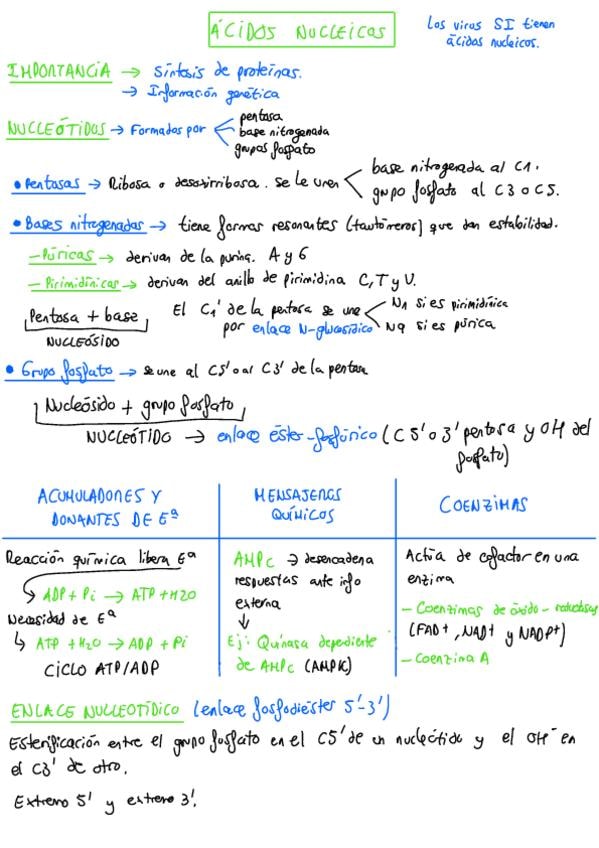 ÁCIDOS NUCLEICOS
Los virus SI tienen
ácidos nucleicos.
IMPORTANCIA → Síntesis de proteínas.
→ Información genética
NUCLEÓTIDOS → Formados por
pentosa
base nitrogenada
grupos fosfato
• Pentosas → Ribosa o desoxirribosa. Se le unen
base nitrogenada al C1.
grupo fosfato al C3 o C5.
• Bases nitrogenadas → tiene formas resonantes (tautómeros) que dan estabilidad.
- Púricas → derivan de la purina. A y G
- Pirimidínicas → derivan del anillo de pirimidina C, T y U.
Pentosa + base
NUCLEÓSIDO
El C1' de la pentosa se une
por enlace N-glucosídico
N1 si es pirimidínica
N9 si es púrica
• Grupo fosfato → se une al C5' o al C3' de la pentosa
Nucleósido + grupo fosfato
NUCLEÓTIDO → enlace éster-fosfórico (C5' o 3' pentosa y OH del
fosfato)
ACUMULADORES Y
DONANTES DE Eª
Reacción química libera Eª
ADP + Pi → ATP + H2O
Necesidad de Eª
ATP + H2O → ADP + Pi
CICLO ATP/ADP
MENSAJEROS
QUÍMICOS
AMPc → desencadena
respuestas ante info
externa
↓
Ej: Quinasa dependiente
de AMPc (AMPK)
COENZIMAS
Actúa de cofactor en una
enzima
- Coenzimas de óxido-reductasas
(FAD+, NAD+ y NADP+)
- Coenzima A
ENLACE NUCLEOTÍDICO (enlace fosfodiéster 5'-3')
Esterificación entre el grupo fosfato en el C5' de un nucleótido y el OH- en
el C3' de otro.
Extremo 5' y extremo 3'.